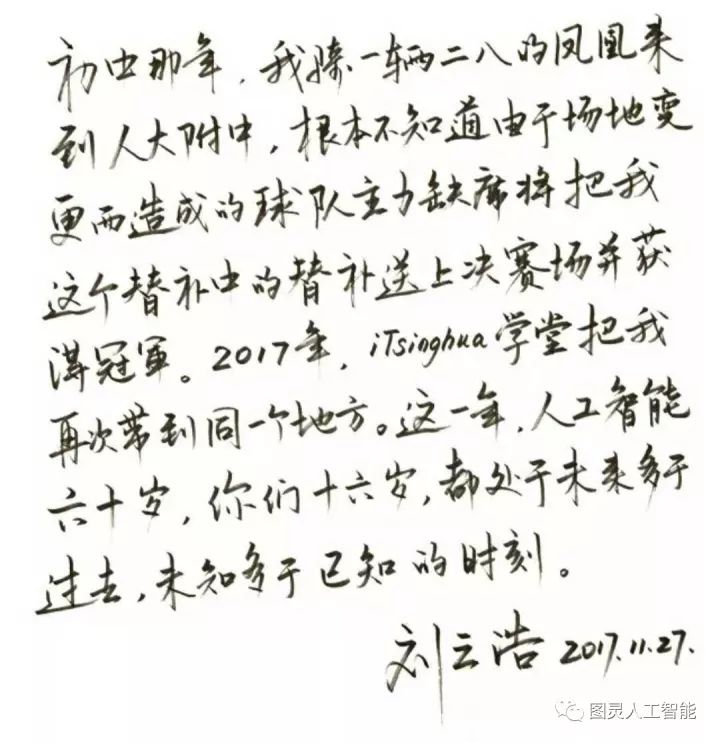 初中那年，我骑一辆二八的凤凰来
到人大附中，根本不知道由于场地变
更而造成的球队主力缺席将把我
这个替补中的替补送上决赛场并获
得冠军。2017年，iTsinghua学堂把我
再次带到同一个地方。这一年，人工智能
六十岁，你们十六岁，都处于未来多于
过去，未知多于已知的时刻。
刘云浩 2017.11.27.
图灵人工智能